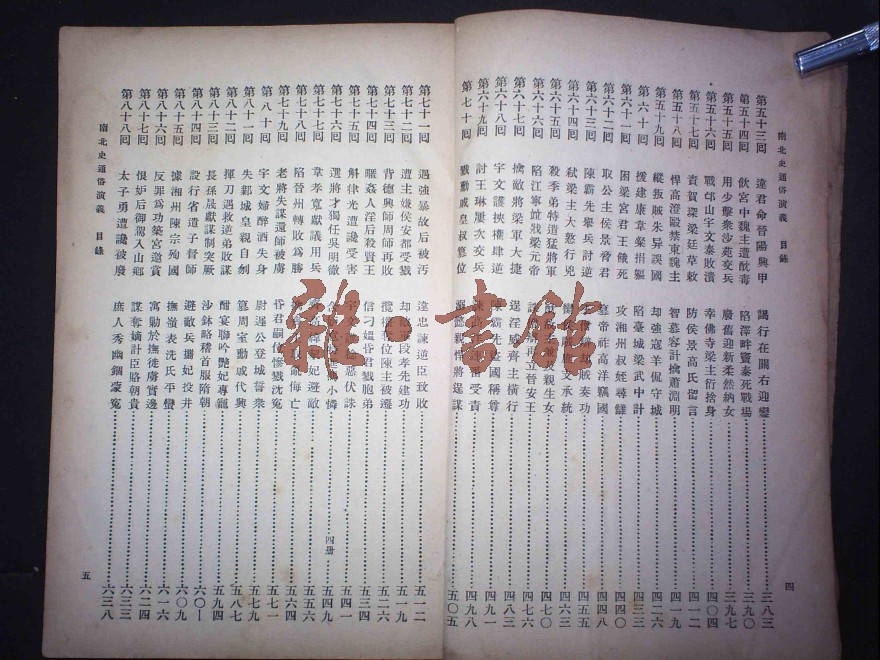 南北史通俗演義 目錄
第五十三回 違君命晉陽興甲 謁行在關右迎鑾 三八三
第五十四回 飲宮中魏主遭酖毒 陷澤畔竇泰死戰場 三九〇
第五十五回 用少擊衆沙苑交兵 廢舊迎新柔然納女 三九七
第五十六回 戰邙山宇文泰敗潰 幸佛寺梁主衍捨身 四〇四
第五十七回 責賀琛梁廷草敕 防侯景高氏留言 四一二
第五十八回 悍高澄毆禁東魏主 智慕容計擒蕭淵明 四一九
第五十九回 縱叛賊朱异誤國 却強寇羊侃守城 四二六
第六十回 援建康韋粲捐軀 陷臺城梁武中計 四三三
第六十一回 困梁宮君王餓死 攻湘州叔姪尋讎 四四〇
第六十二回 取公主侯景脅君 篡帝祚高洋竊國 四四八
第六十三回 陳霸先舉兵討逆 王僧辯却賊奏功 四五五
第六十四回 弒梁主大憝行兇 承統 四六三
第六十五回 殺季弟特遣猛將軍 雙親生女 四七〇
第六十六回 陷江寧竝戕梁元帝 再立晉安王 四七六
第六十七回 擒敵將梁軍大捷 逞淫威齊主橫行 四八三
第六十八回 宇文護挾權肆逆 陳霸先盜國稱尊 四九一
第六十九回 討王琳屢次交兵 受責 四九八
第七十回 戮勳戚皇叔篡位 逞謀 五〇五
四
第七十一回 遇強暴故后被汚 違忠諫逆臣致敗 五一二
第七十二回 遭主嫌侯安都受戮 却敵段孝先建功 五一九
第七十三回 背德興師周師再敗 攬權奪位陳主被遷 五二六
第七十四回 暱姦人淫后殺賢王 信刁媼昏君戮胞弟 五三四
第七十五回 斛律光遭讒受害 惡伏誅 五四一
四册
第七十六回 選將才獨任吳明徹 小憐 五四九
第七十七回 韋孝寬獻議用兵 妃避敵 五五六
第七十八回 陷晉州轉敗爲勝 侮亡 五六四
第七十九回 老將失謀還師被虜 昏君嗣 慘戮沈冤 五七一
第八十回 宇文婦醉酒失身 尉遲公登城誓衆 五七九
第八十一回 失鄴城皇親自刎 篡周室勳戚代興 五八七
第八十二回 揮刀遇救逆弟敗謀 酣宴聯吟艷妃專寵 五九四
第八十三回 長孫晟獻謀制突厥 沙鉢略稽首服隋朝 六〇一
第八十四回 設行省道子督師 避敵兵孱妃投井 六〇九
第八十五回 據湘州陳宗殉國 撫嶺表洗氏平蠻 六一六
第八十六回 反罪爲功築宮邀賞 寓勦於撫徙虜實邊 六二四
第八十七回 恨妒后御駕入山鄉 謀奪嫡計臣賂朝貴 六三三
第八十八回 太子勇遭讒被廢 庶人秀幽錮蒙冤 六三八
南北史通俗演義 目錄
五
雜·書館